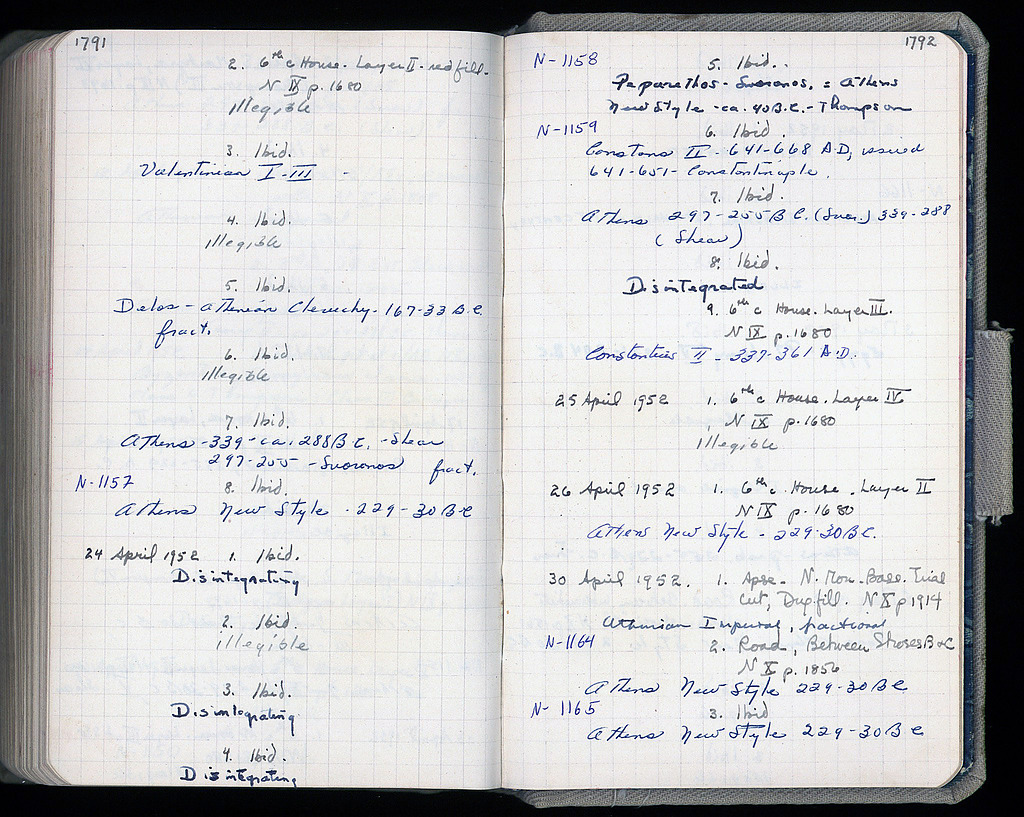 1791
2. 6th c House. Layer II - red fill.
N IX p. 1680
illegible
3. Ibid.
Valentinian I-III -
4. Ibid.
illegible
5. Ibid.
Delos - Athenian Cleruchy. 167-33 B.C.
fract.
6. Ibid.
illegible
7. Ibid.
Athens - 339 - ca. 288 B.C. - Shear
297-255 - Svoronos fract.
N-1157 8. Ibid.
Athens New Style - 229-30 B.C
24 April 1952 1. Ibid.
Disintegrating
2. Ibid.
illegible
3. Ibid.
Disintegrating
4. Ibid.
Disintegrating
1792
N-1158 5. Ibid..
Peparethos - Svoronos. = Athens
New Style - ca. 40 B.C. - Thompson
N-1159 6. Ibid.
Constans II - 641-668 A.D, issued
641-651 - Constantinople.
7. Ibid.
Athens 297-255 B.C. (Svor.) 339-288
(Shear)
8. Ibid.
Disintegrated
9. 6th c House. Layer III.
N IX p. 1680
Constantius II - 337-361 A.D.
25 April 1952 1. 6th c House. Layer IV
N IX p. 1680
illegible
26 April 1952 1. 6th c. House. Layer II
N IX p. 1680
Athens New Style - 229-30 B.C.
30 April 1952. 1. Apse - N. Mon. Base. Trial
Cut, Dug fill. N X p 1914
Athenian Imperial, fractional
N-1164 2. Road, Between Stroses B & C
N X p. 1856
Athens New Style 229-30 B C
N-1165 3. Ibid
Athens New Style 229-30 B C